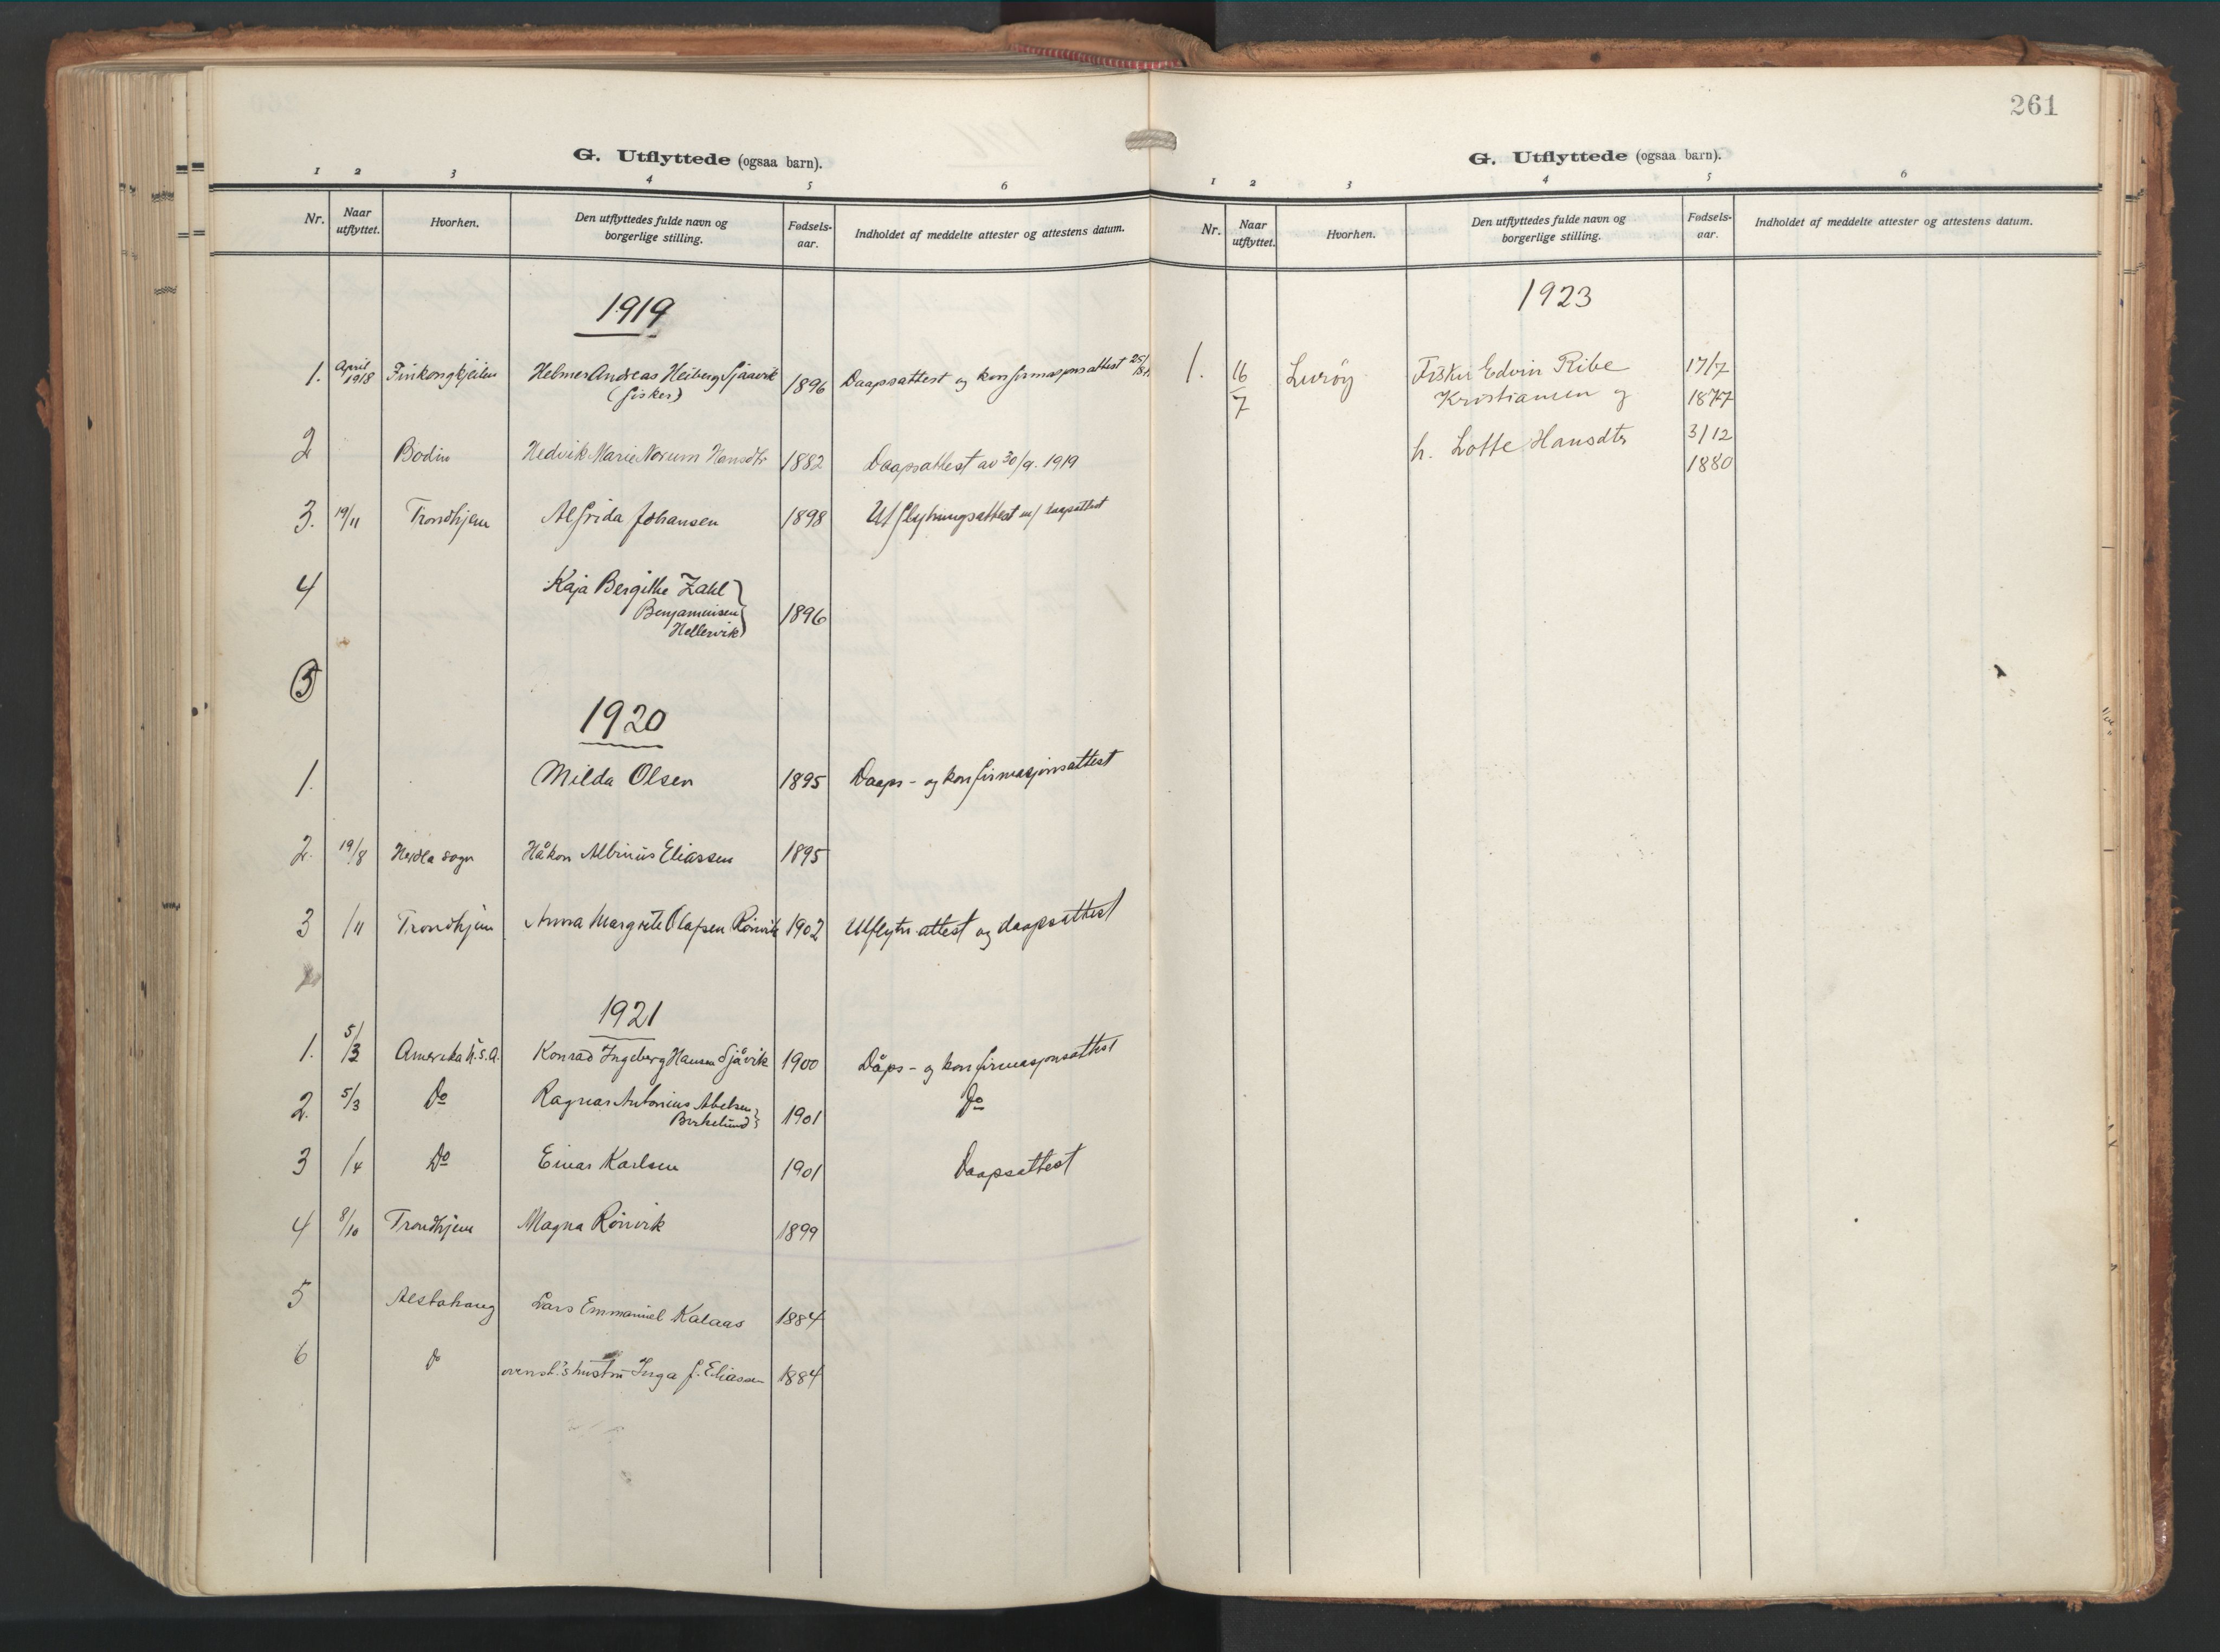 G. Utflyttede (ogsaa barn).
1 2 3 4 5 6
Nr. Naar utflyttet. Hvorhen. Den utflyttedes fulde navn og borgerlige stilling. Fødsels-aar. Indholdet af meddelte attester og attestens datum.
1919
1. April 1918 Finkongkjeilen Helmer Andreas Heiberg Sjåavik 1896 Daapsattest og konfirmasjonsattest
(fisker)
2 Bodin Hedvik Marie Norum Hansdtr 1882 Daapsattest av 30/9. 1919
3. 19/11 Trondhjem Alfrida Johansen 1898 Utflytningsattest m/ daapsattest
4 Kaja Bergithe Zahl
Benjaminsen 1896
Hellervik
5
1920
1. Milda Olsen 1895 Daaps- og konfirmasjonsattest
2. 19/8 Herdla sogn Håkon Albinius Eliassen 1895
3 /11 Trondhjem Anna Margrete Olafsen Rönvik 1902 Utflytn. attest og daapsattest
1921
1. 5/3 Amerika U.S.A. Konrad Ingeberg Hansen Sjåvik 1900 Dåps- og konfirmasjonsattest
2. 5/3 Do Ragnar Antonius Abelsen 1901 Do
Birkelund
3 /4 Do Einar Karlsen 1901 Daapsattest
4 8/10 Trondhjem Magna Rönvik 1899
5 Alstahaug Lars Emmanuel Kalaas 1884
6 Do ovenst.'s hustru Inga J. Eliassen 1884
261
G. Utflyttede (ogsaa barn).
1 2 3 4 5 6
Nr. Naar utflyttet. Hvorhen. Den utflyttedes fulde navn og borgerlige stilling. Fødsels-aar. Indholdet af meddelte attester og attestens datum.
1923
1. 16/7 Lurøy Fisker Edvin Ribe 17/7
Kristiansen og 1877
h. Lotte Hansdtr 3/12
1880